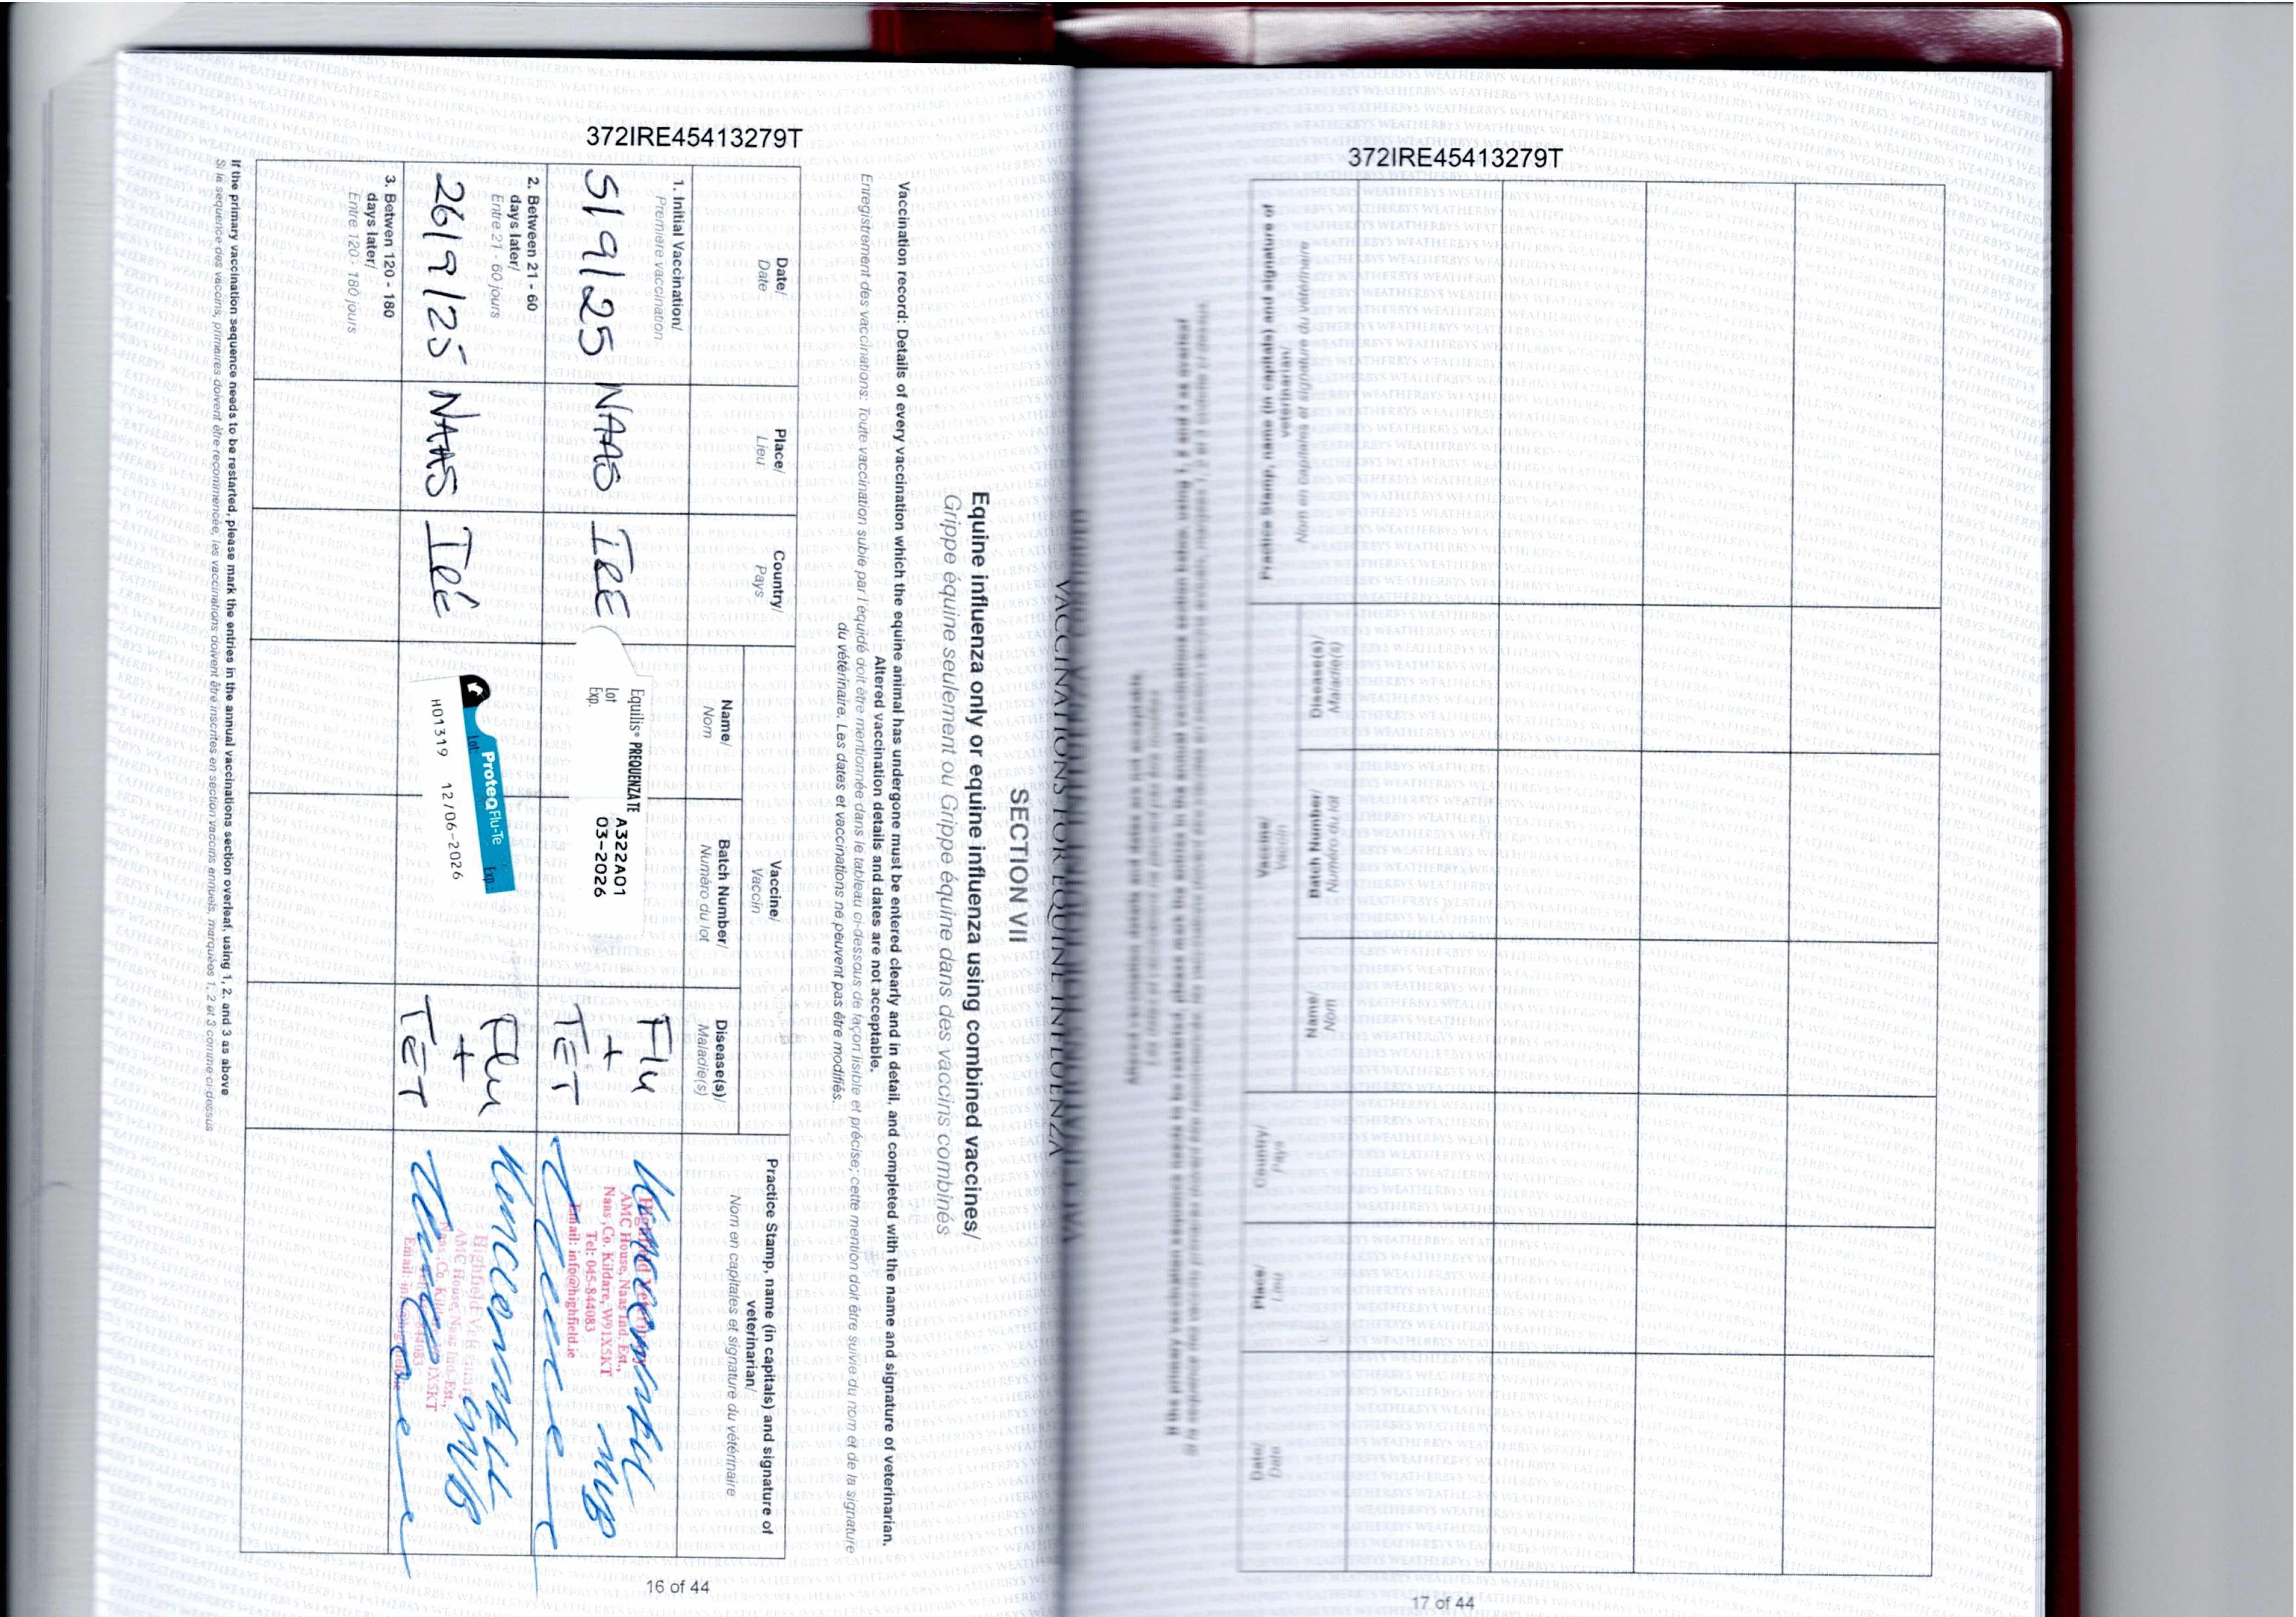 372IRE45413279T
VACCINATIONS FOR EQUINE INFLUENZA
SECTION VII
Equine influenza only or equine influenza using combined vaccines/
Grippe équine seulement ou Grippe équine dans des vaccins combinés
Vaccination record: Details of every vaccination which the equine animal has undergone must be entered clearly and in detail, and completed with the name and signature of veterinarian.
Altered vaccination details and dates are not acceptable.
Enregistrement des vaccinations: Toute vaccination subie par l'équidé doit être mentionnée dans le tableau ci-dessous de façon lisible et précise; cette mention doit être suivie du nom et de la signature
du vétérinaire. Les dates et vaccinations ne peuvent pas être modifiés.
Date/
Date
Place/
Lieu
Country/
Pays
Vaccine/
Vaccin
Name/
Nom
Batch Number/
Numéro du lot
Disease(s)/
Maladie(s)
Practice Stamp, name (in capitals) and signature of
veterinarian/
Nom en capitales et signature du vétérinaire
1. Initial Vaccination/
Première vaccination
5/9/25 NAAS IRE
Equilis® PREQUENZA TE
Lot A322A01
Exp. 03-2026
Flu
+
TET
AMC House, Naas Ind. Est.,
Naas, Co. Kildare, W91X5KT
Tel: 045-844083
Email: info@highfield.ie
MVB
2. Between 21 - 60
days later/
Entre 21 - 60 jours
26/9/25 NAAS IRE
ProteqFlu-Te
Lot: Exp.:
H01319 12/06-2026
Flu
+
TET
Highfield
AMC House, Naas Ind. Est.,
MVB
3. Betwen 120 - 180
days later/
Entre 120 - 180 jours
If the primary vaccination sequence needs to be restarted, please mark the entries in the annual vaccinations section overleaf, using 1, 2, and 3 as above
Si la séquence des vaccins, primaires doivent être recommencée, les vaccinations doivent être inscrites en section vaccins annuels, marquées 1, 2 et 3 comme ci-dessus
16 of 44
372IRE45413279T
17 of 44